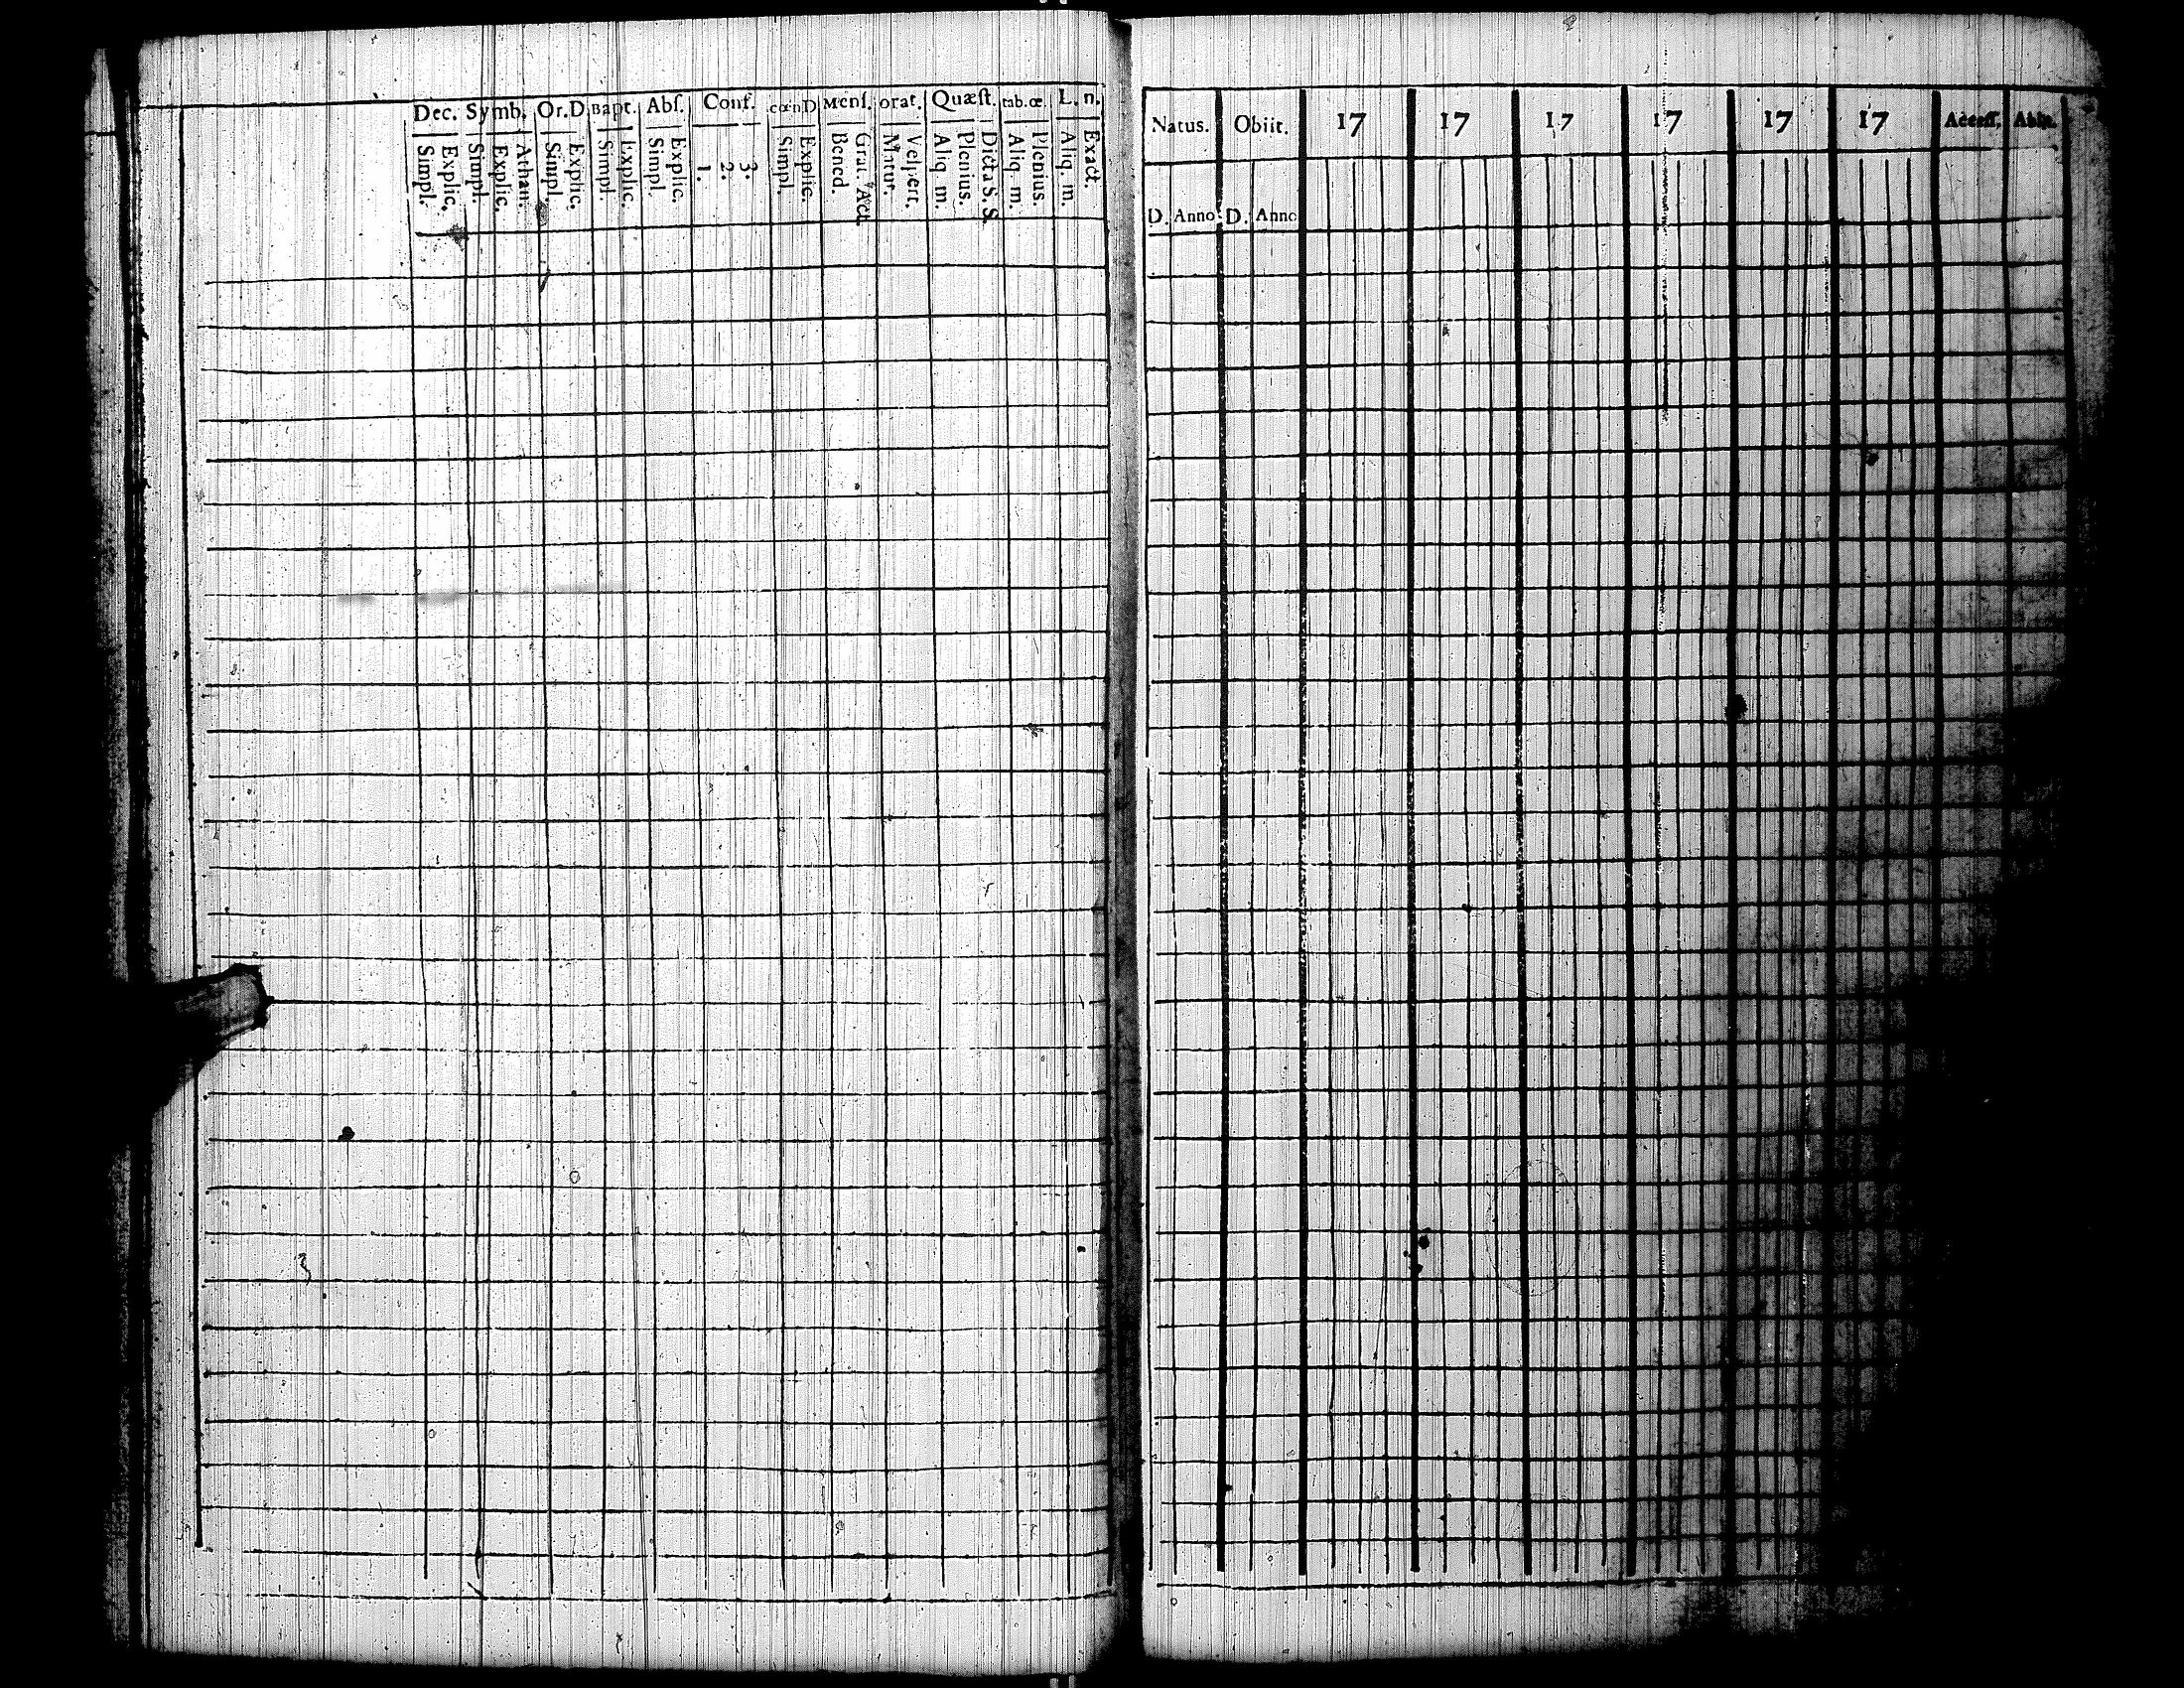 Dec. Symb. Or.D. Bapt. Abſ. Conf. cœnD. Menſ. orat. Quæſt. tab.œ. L. n.
Simpl. Explic. Simpl. Explic. Athan. Simpl. Explic. Simpl. Explic. Simpl. Explic. 1. 2. 3. Simpl. Explic. Bened. Grat. Act. Matur. Veſpert. Aliq. m. Plenius. Dicta S. S. Aliq. m. Plenius. Aliq. m. Exact.
Natus. Obiit. 17 17 17 17 17 17 Acceſſ. Abiit.
D. Anno. D. Anno